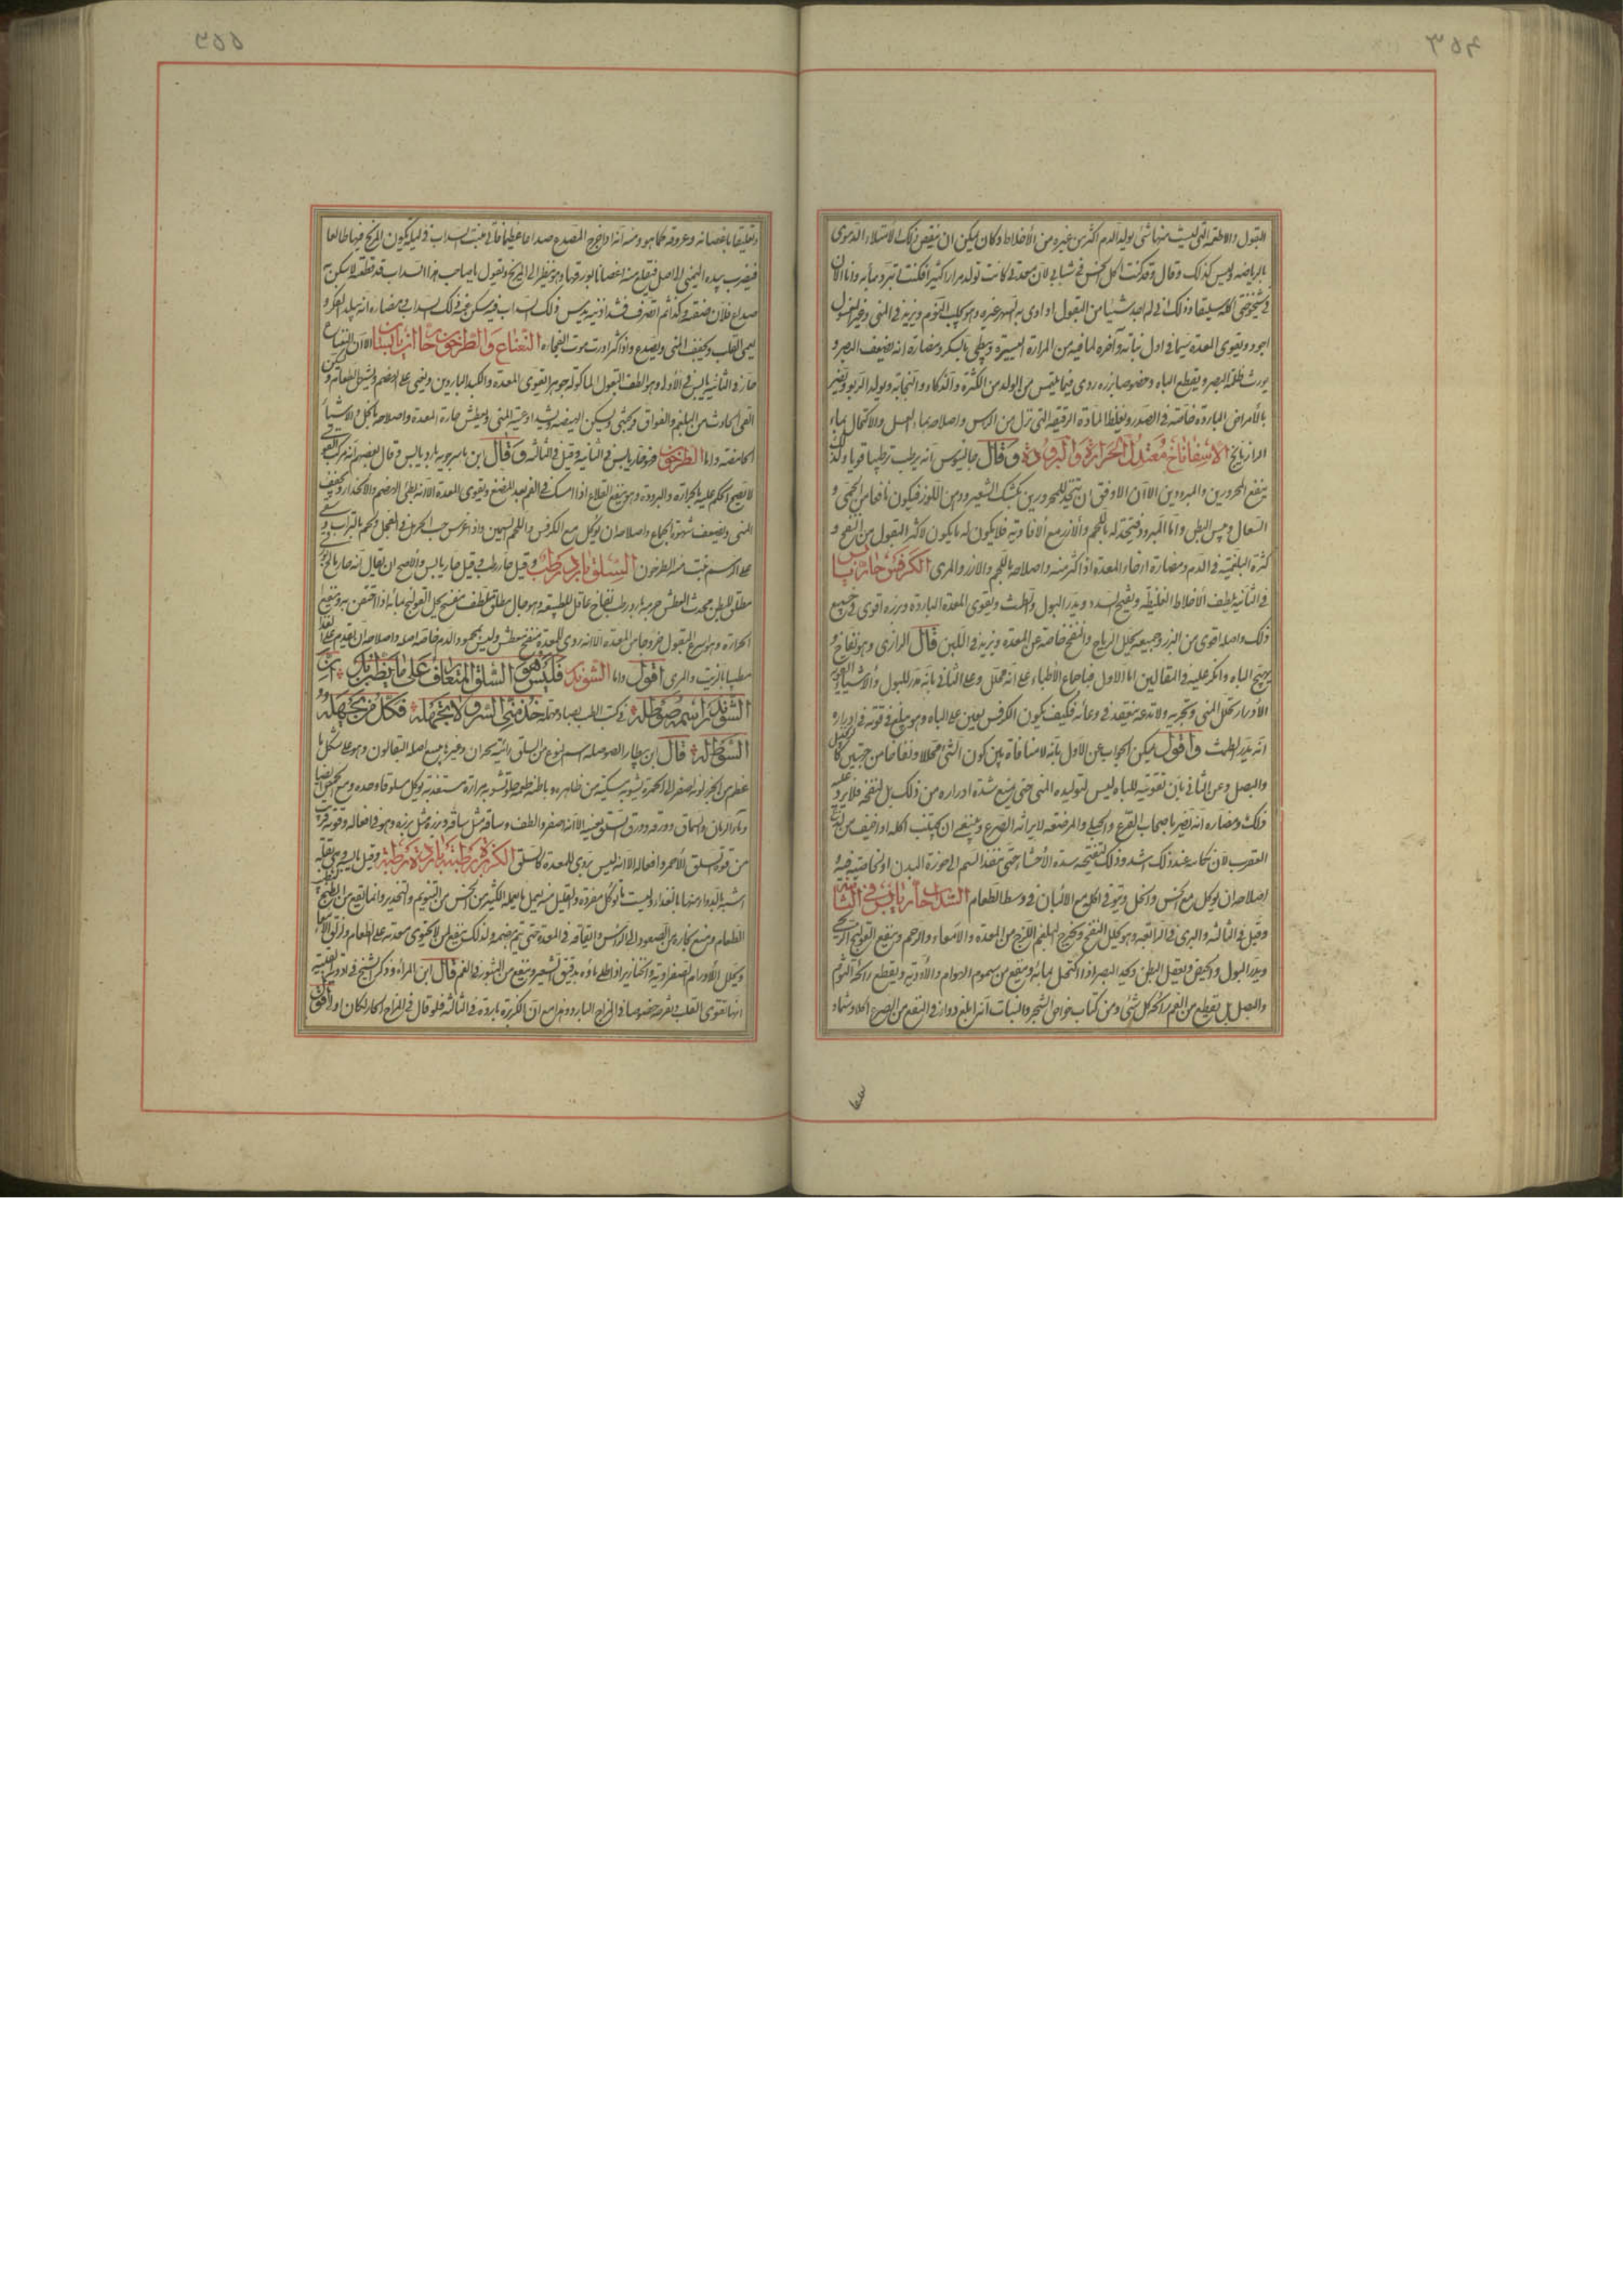 ٣٥٤
البقول والاطعمة التى ليست منها شئ يولد الدم اكثر من غيره من الأخلاط وكان يمكن ان ينقص ذلك الامتلاء الدموى
بالرياضة وليس كذلك وقال وقد كنت آكل الخس فى شبابى لان معدتى كانت تولد مرارا كثيرا فكنت اتبرد به واما الآن
فى شيخوختى آكله سليقا وذلك انى لم اجد شيئا من البقول اداوى به السهر غيره وهو يجلب النوم ويزيد فى المنى وغير المغسول
اجود ويقوى المعدة سيما فى اول نباته وآخره لما فيه من المرارة اليسيرة ويبطئ بالسكر ومضارة انه يضعف البصر و
يورث ظلمة البصر ويقطع الباه وخصوصا بزره روى فيما يلتمس من الولد من الكثرة والذكاء والنجابة ويولد الربو ويضر
بالأمراض الباردة خاصة فى الصدر ويغلظ المادة الرقيقة التى تنزل من الرأس واصلاحه بماء العسل والاكتحال بماء
الرازيانج الاسفاناخ معتدل الحرارة والبرودة وقال جالينوس انه يرطب ترطيبا قويا ولذلك
ينفع المحرورين والمبرودين الا ان الاوفق ان يتخذ للمحرورين بكشك الشعير ودهن اللوز فيكون نافعا من الحمى و
السعال ويبس البطن واما المبرود فيتخذ له باللحم والأرز مع الأفاويه فلا يكون له ما يكون لاكثر البقول من النفخ و
كثرة البلغمية فى الدم ومضارة ارخاء المعدة اذا اكثر منه واصلاحه باللحم والارز والمرى الكرفس حار يابس
فى الثانية يلطف الأخلاط الغليظة ويفتح السدد ويدر البول والطمث ويقوى المعدة الباردة وبزره اقوى فى جميع
ذلك واصله اقوى من البزر وجميعه يحلل الرياح والنفخ خاصة عن المعدة ويزيد فى اللبن قال الرازى وهو نفاخ و
يهيج الباه وانكر عليه فى المقالين اما الاول فباجماع الأطباء على انه محلل وعلى الثانى بأنه مدر للبول والاشياء القوية
الأدرار تحلل المنى وتجريه ولا تدعه ينعقد فى وعائه فكيف يكون الكرفس يعين على الباه وهو يبلغ فى قوته فى ادراره
انه يدر الطمث واقول يمكن الجواب عن الأول بأنه لا منافاة بين كون الشئ محللا ونفاخا من جهتين كالفجل
والبصل وعن الثانى بان تقويته للباه ليس لتوليده المنى حتى يمنع شدة ادراره من ذلك بل لنفخه فلا يرد عليه
ذلك ومضاره انه يضر باصحاب الصرع والحبلى والمرضعة لايراثه الصرع وينبغى ان يجتنب اكله اذا خيف من لدغ
العقرب لان نكايته عند ذلك اشد وذلك لتفتيحه سدة الأحشاء حتى ينفذ السم الى حوزة البدن او لخاصية فيه
اصلاحه ان يؤكل مع الخس والخل ويتوقى اكله مع الألبان فى وسط الطعام السداب حار يابس فى الثانية
وقيل فى الثالثة والبرى فى الرابعة وهو يحلل النفخ ويخرج البلغم اللزج من المعدة والأمعاء والرحم وينفع القولنج الريحى
ويدر البول والحيض ويعقل البطن ويحد البصر اذا اكتحل بمائه وينفع من سموم الهوام والأدوية ويقطع رائحة الثوم
والبصل بل يقطع من الفم رائحة كل شئ ومن كتاب خواص الشجر والنبات انه ابلغ دواء فى النفع من الصرع اكلا وشما
٣٥٥
وتعليقا باغصانه وعروقه كما هو ومنه انه اذا خرج المصدع صداعا عظيما فاتى منبت السداب فى ليلة يكون المريخ فيها طالعا
فيضرب بيده اليمنى الى اصل فيقلع منه اغصانا بورقها وهو ينظر الى المريخ ويقول يا صاحب هذا السداب قد قطعته لاسكن به
صداع فلان ثم انصرف فشد اذنيه ذلك السداب فيه سكن ومضاره انه يبلد الفكر و
يعمى القلب ويجفف المنى ويصدع واذا اكثر اورث موت الفجأة النعناع والطرخون حاران يابسان الا ان النعناع
حار فى الثانية يابس فى الأولى وهو الطف البقول المأكولة جوهرا يقوى المعدة والكبد الباردين ويعين على الهضم ويشهى الطعام ويسكن
القئ الحادث من البلغم والفواق ويسكن الهيضة ويشد اوعية المنى ويعطش حارة المعدة واصلاحه بالخل والاشياء
الحامضة واما الطرخون فهو حار يابس فى الثانية وقيل فى الثالثة وقال ابن ماسرجويه بارد يابس وقال بعضهم انه مركب القوى
لا يصح الحكم عليه بالحرارة والبرودة وهو ينفع القلاع اذا امسك فى الفم بعد المضغ ويقوى المعدة الا انه بطئ الهضم والانحدار ويجفف
المنى ويضعف شهوة الجماع واصلاحه ان يؤكل مع الكرفس واللحم السمين واذا غرس حب الحرمل فى الفجل ولحم بالتراب وسقى
على الرسم نبت منه الطرخون السلق بارد رطب وقيل حار رطب وقيل حار يابس والأصح ان يقال انه حار
مطلق للبطن محدث العطش جرمه بارد رطب نفاخ عاقل للطبيعة وهو حال مطلق ملطف مفتح يحل القولنج بمائه اذا احتقن به وينفع
الحرارة وهو اسرع البقول خروجا من المعدة الا انه ردى للمعدة منفخ معطش وليس بمحمود الدم خاصة اصله واصلاحه ان يقدم على الغذاء
مطيبا بالزيت والمرى اقول واما الشوند فليس هو السلق المتعارف على ما يظن بل ان
الشوندر اسمه صوطله فى كتب الطب بصاد مهملة خذ منى الشرف لا تجهله فكل من يجهله
السوطله قال ابن بيطار الصوطلة اسم لنوع من السلق رأيته بحران وغيرها يبيع اصله البقالون وهو على شكل ما
عظم من الجزر لونه اصفر الى الحمرة يشوبه مسكية من ظاهره وباطنه طعمه حلو تشوبه مرارة مستعذبة يؤكل مسلوقا وحده ومع الحمص ايضا
وماء الرمان والسماق وورقه ورق السلق بعينه الا انه اصغر والطف وساقه مثل ساقه وبزره مثل بزره وهو فى افعاله وقوته قريب
من قوة السلق الأحمر وافعاله الا انه ليس بردى للمعدة كالسلق الكزبرة رطبتها باردة رطبة وقيل يابسة وهى بقلة
اشبه بالدواء منها بالغذاء وليست تؤكل مفردة والقليل منه يعمل ما يعمله الكثير من الخس من التنويم والتخدير وانما يقع من الطبخ لطيب
الطعام ويمنع بخاره من الصعود الى الرأس وايقافه فى المعدة حتى يتم هضمه ولذلك ينفع من لا يحتوى معدته على الطعام وزلق الأمعاء
ويحلل الأورام الصفراوية والخنازير اذا طلى ماؤه بدقيق الشعير وينفع من البثور فى الفم قال ابن المرأة وذكر الشيخ فى ادوية القلبية
انها تقوى القلب بتفريحه خصوصا فى المزاج البارد وهذا مع ان الكزبرة باردة فى الثالثة فلو قال فى المزاج الحار لكان اولى واقول